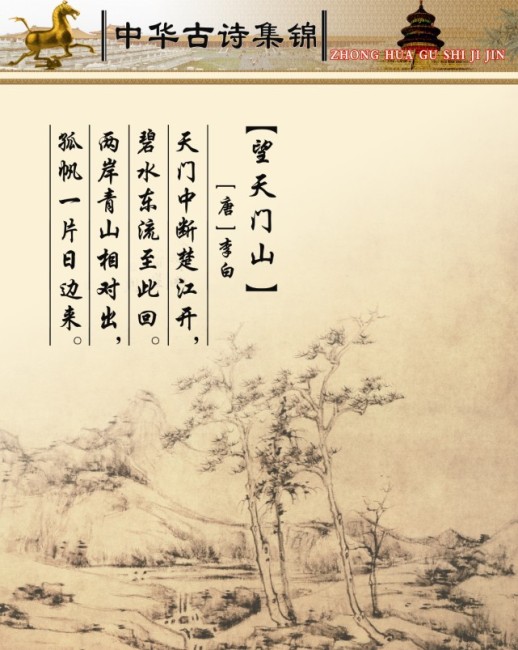 中华古诗集锦
ZHONG HUA GU SHI JI JIN
【望天门山】
[唐]李白
天门中断楚江开，
碧水东流至此回。
两岸青山相对出，
孤帆一片日边来。